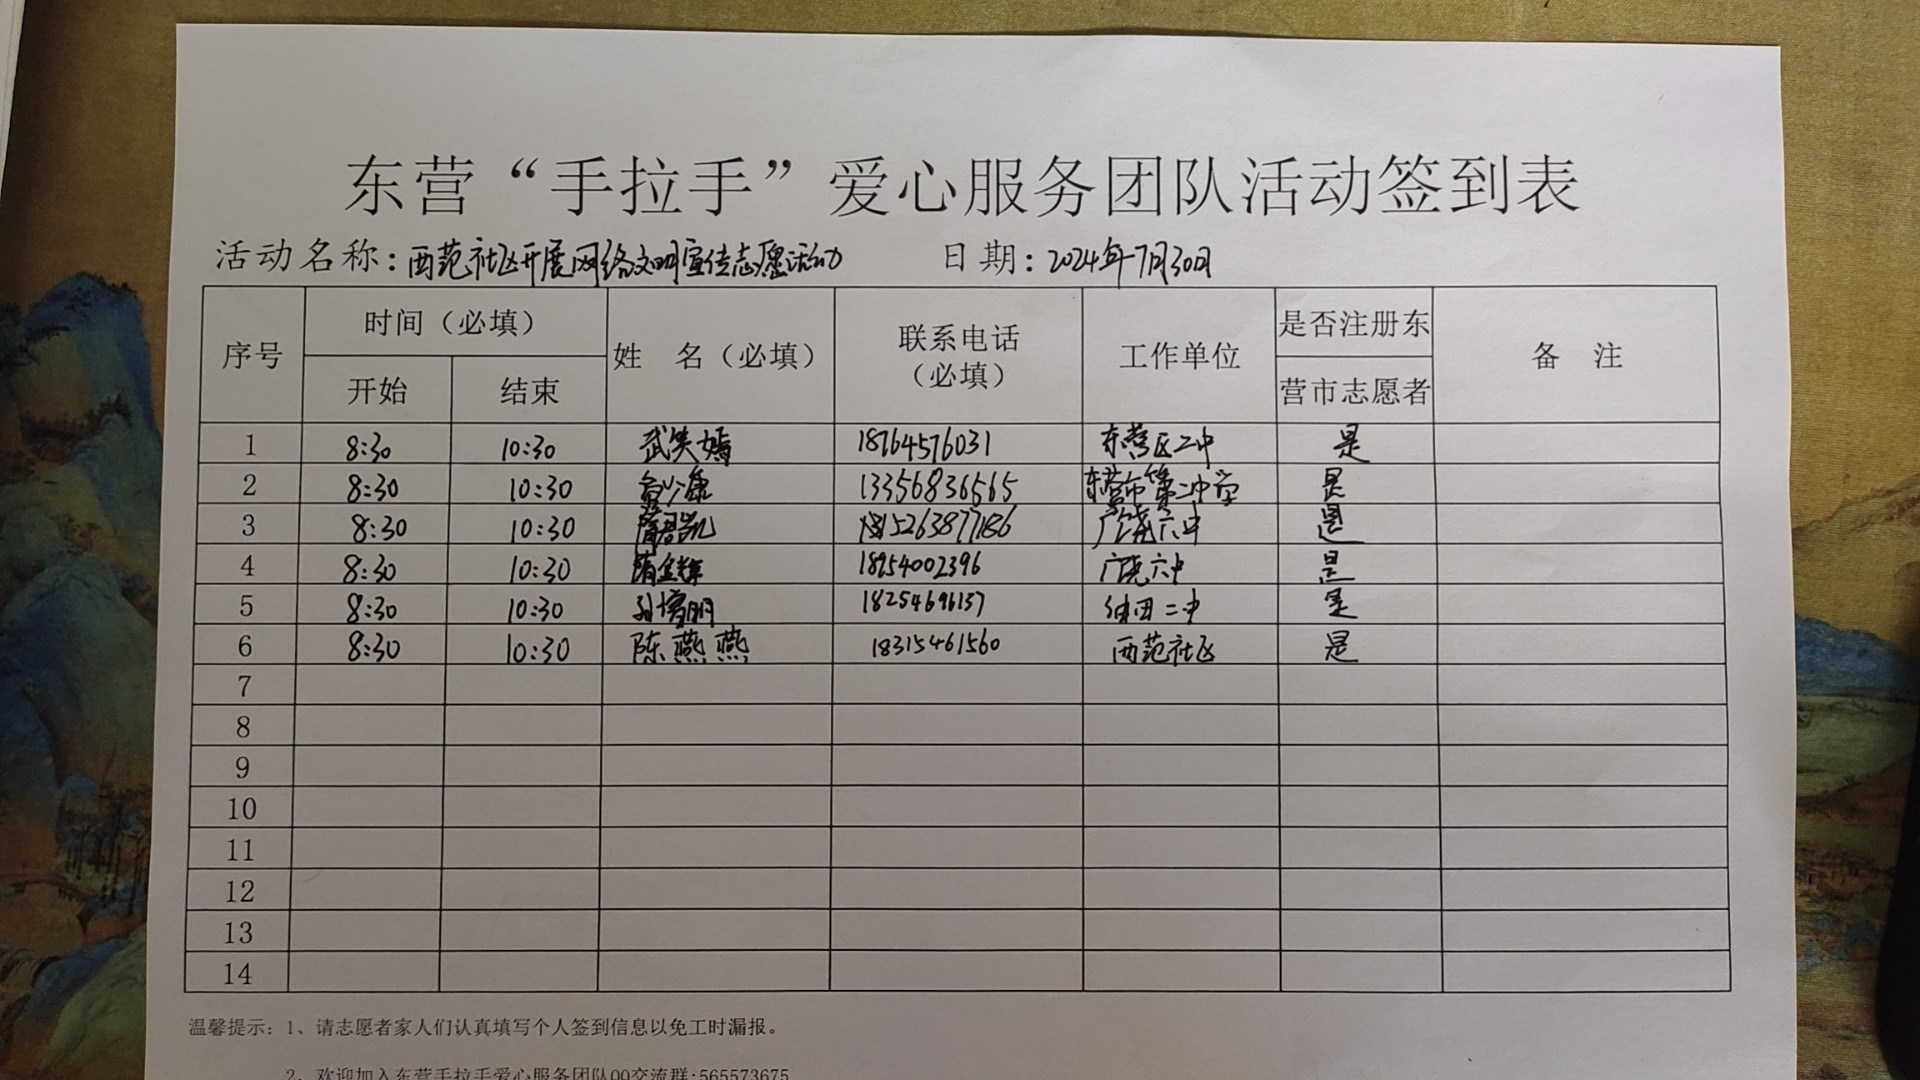 东营“手拉手”爱心服务团队活动签到表
活动名称：西范社区开展网络文明宣传志愿活动 日期：2024年7月30日
序号 时间（必填） 开始 结束 姓 名（必填） 联系电话（必填） 工作单位 是否注册东营市志愿者 备 注
1 8:30 10:30 武笑嫣 18764576031 东营区二中 是
2 8:30 10:30 13356836565 东营市第二中学 是
3 8:30 10:30 15263877186 广饶六中 是
4 8:30 10:30 18954002396 广饶六中 是
5 8:30 10:30 18254696137 油田二中 是
6 8:30 10:30 陈燕燕 18315461560 西范社区 是
7
8
9
10
11
12
13
14
温馨提示：1、请志愿者家人们认真填写个人签到信息以免工时漏报。
2、欢迎加入东营手拉手爱心服务团队QQ交流群:565573675